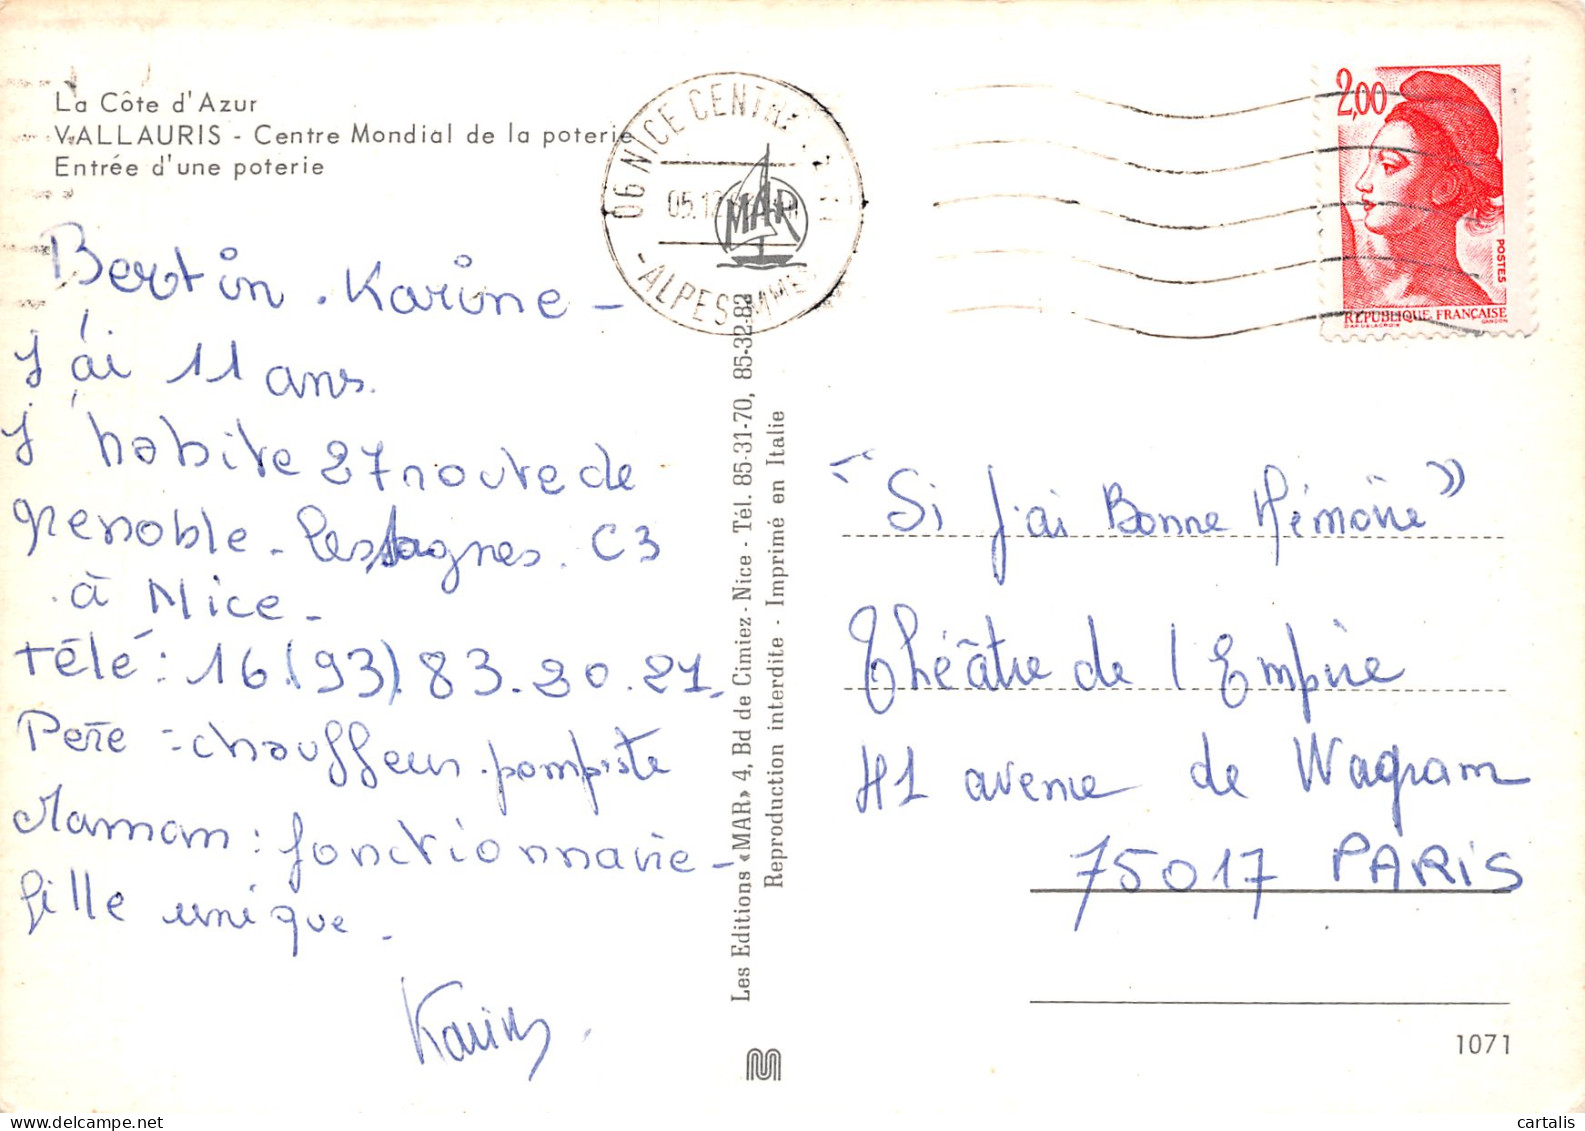 La Côte d'Azur
VALLAURIS - Centre Mondial de la poterie
Entrée d'une poterie
Bertin. Karine -
J'ai 11 ans.
J'habite 27 route de
grenoble - les sagnes. C3
à Nice -
télé : 16.(93).83.20.27.
Père = chauffeur. pompiste
Maman : fonctionnaire -
fille unique.
Karine.
06 NICE CENTRE
05.12
-ALPES MMES
MAR
Les Editions «MAR» 4, Bd de Cimiez - Nice - Tél. 85-31-70, 85-32-82
Reproduction interdite - Imprimé en Italie
2,00
POSTES
RÉPUBLIQUE FRANÇAISE
D'AP. DELACROIX GANDON
"Si J'ai Bonne Mémoire"
Théâtre de l'Empire
41 avenue de Wagram
75017 PARIS
1071
cartalis